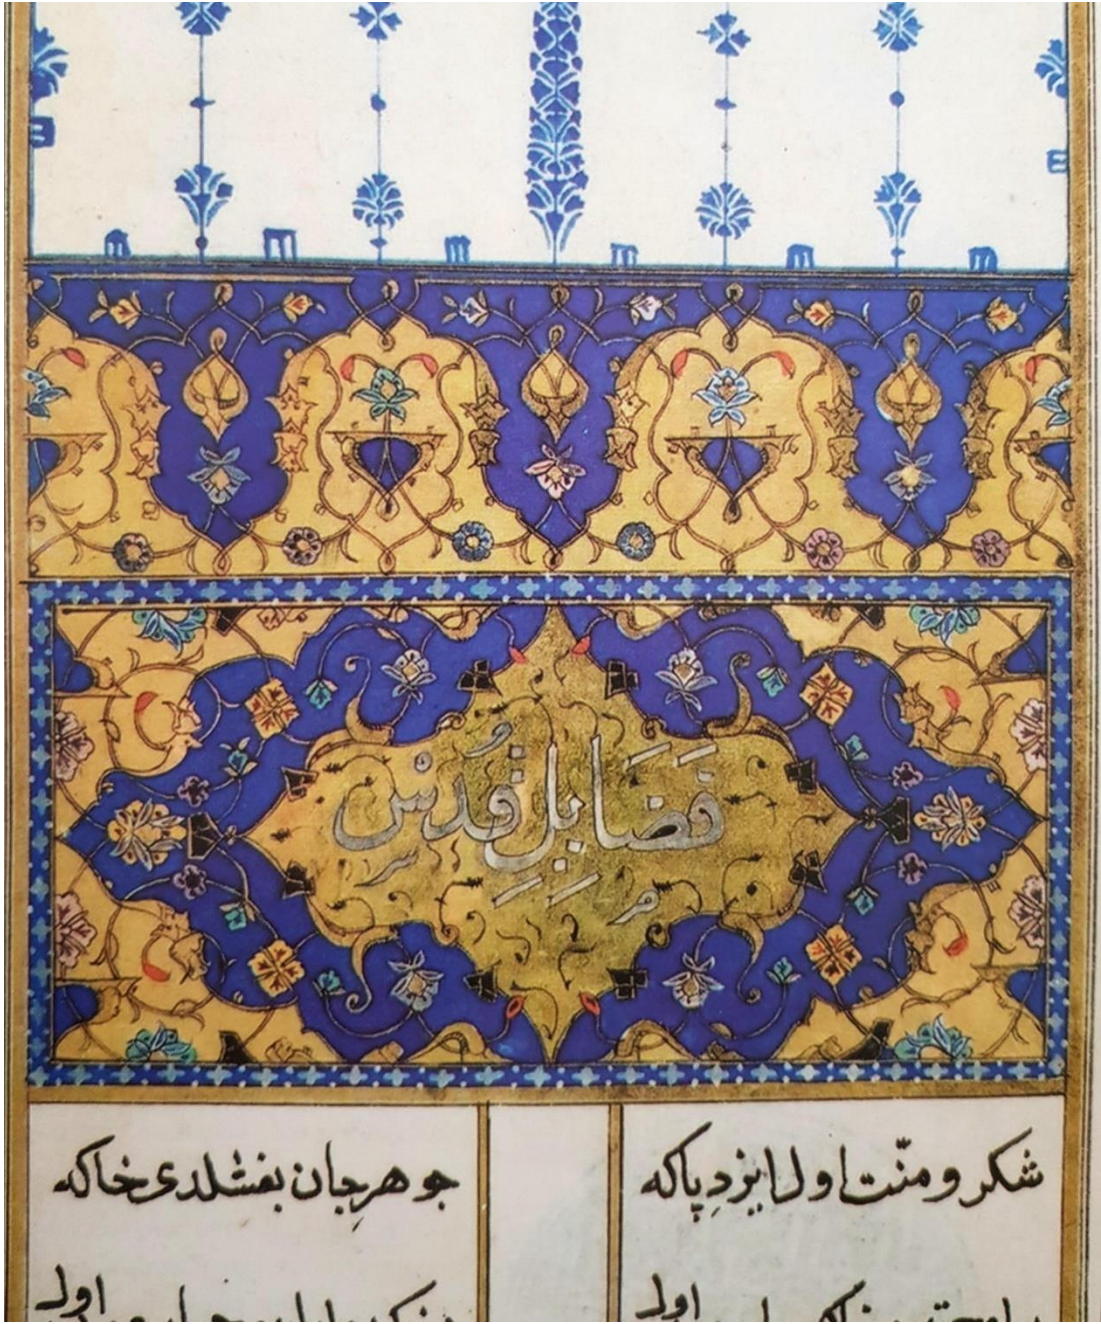 فَضَايِلِ قُدُس
شكر و منّت اول ايزدِ پاكه
جوهرِ جان بغشلدى خاكه
اول
اول